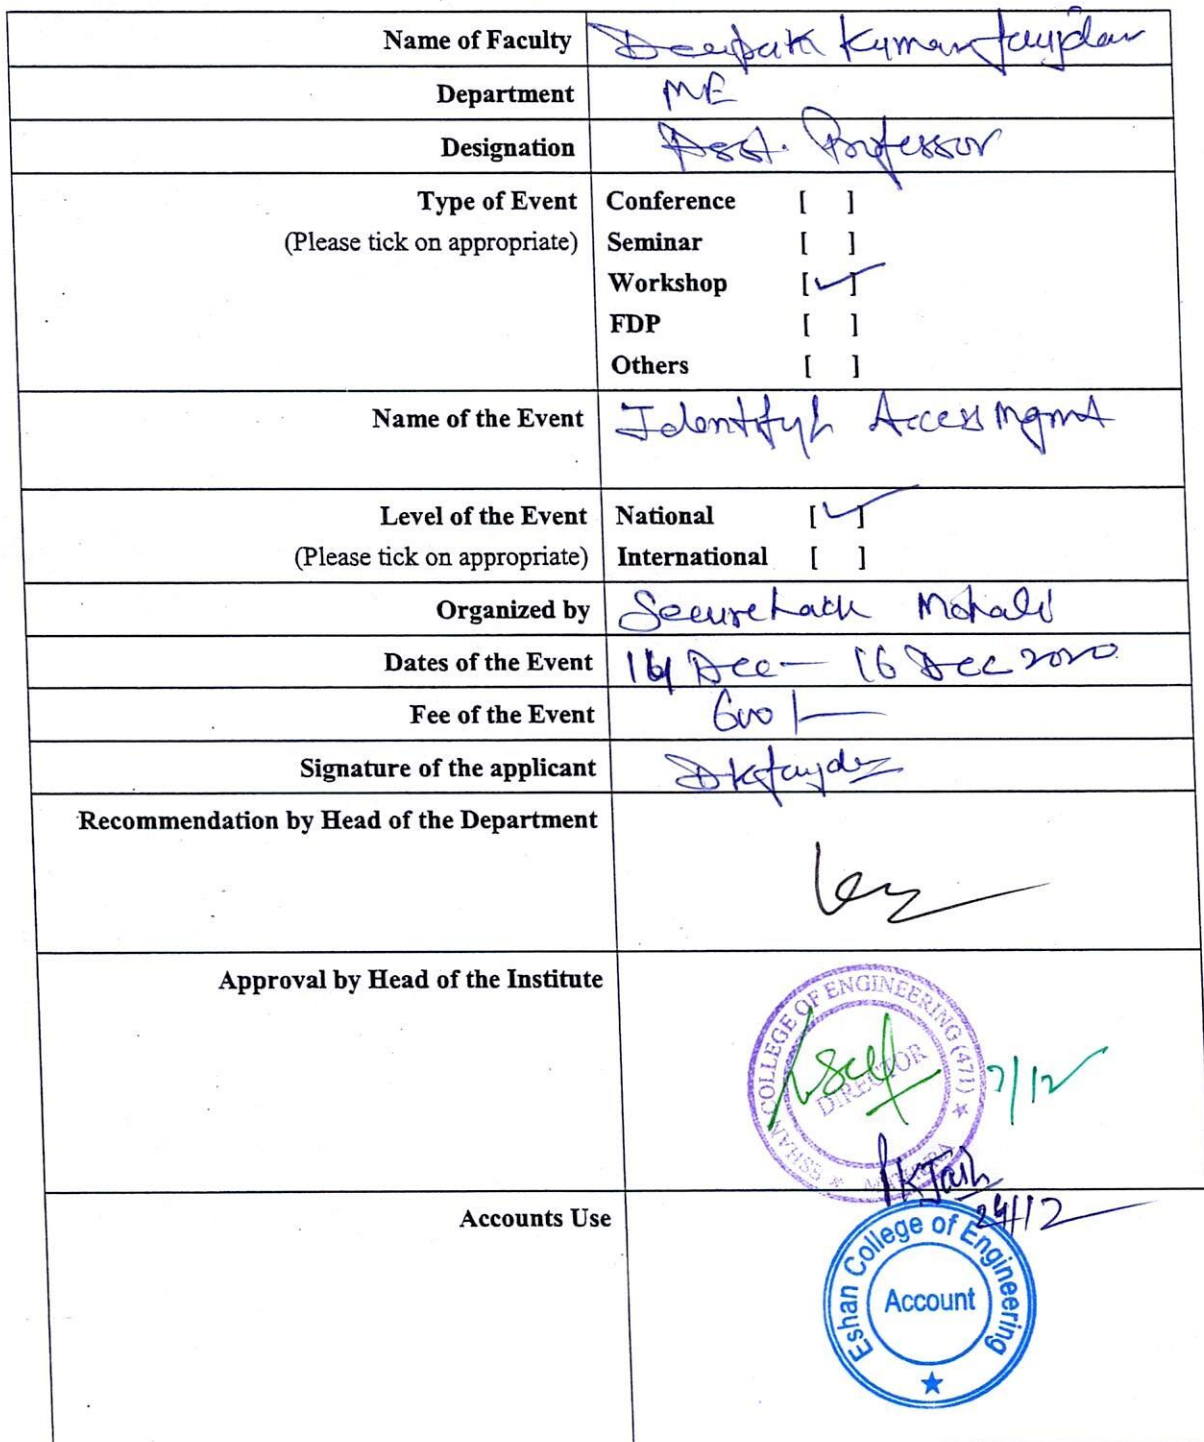 Name of Faculty Deepak Kumar
Department ME
Designation Asst. Professor
Type of Event Conference [ ]
(Please tick on appropriate) Seminar [ ]
Workshop [✓]
FDP [ ]
Others [ ]
Name of the Event Access Mgmt
Level of the Event National [✓]
(Please tick on appropriate) International [ ]
Organized by Securehack Mohali
Dates of the Event 14 Dec — 16 Dec 2020
Fee of the Event 600/—
Signature of the applicant
Recommendation by Head of the Department
Approval by Head of the Institute
ESHAN COLLEGE OF ENGINEERING (471) ★ MATHURA ★
DIRECTOR
7/12
24/12
Accounts Use
Eshan College of Engineering
Account